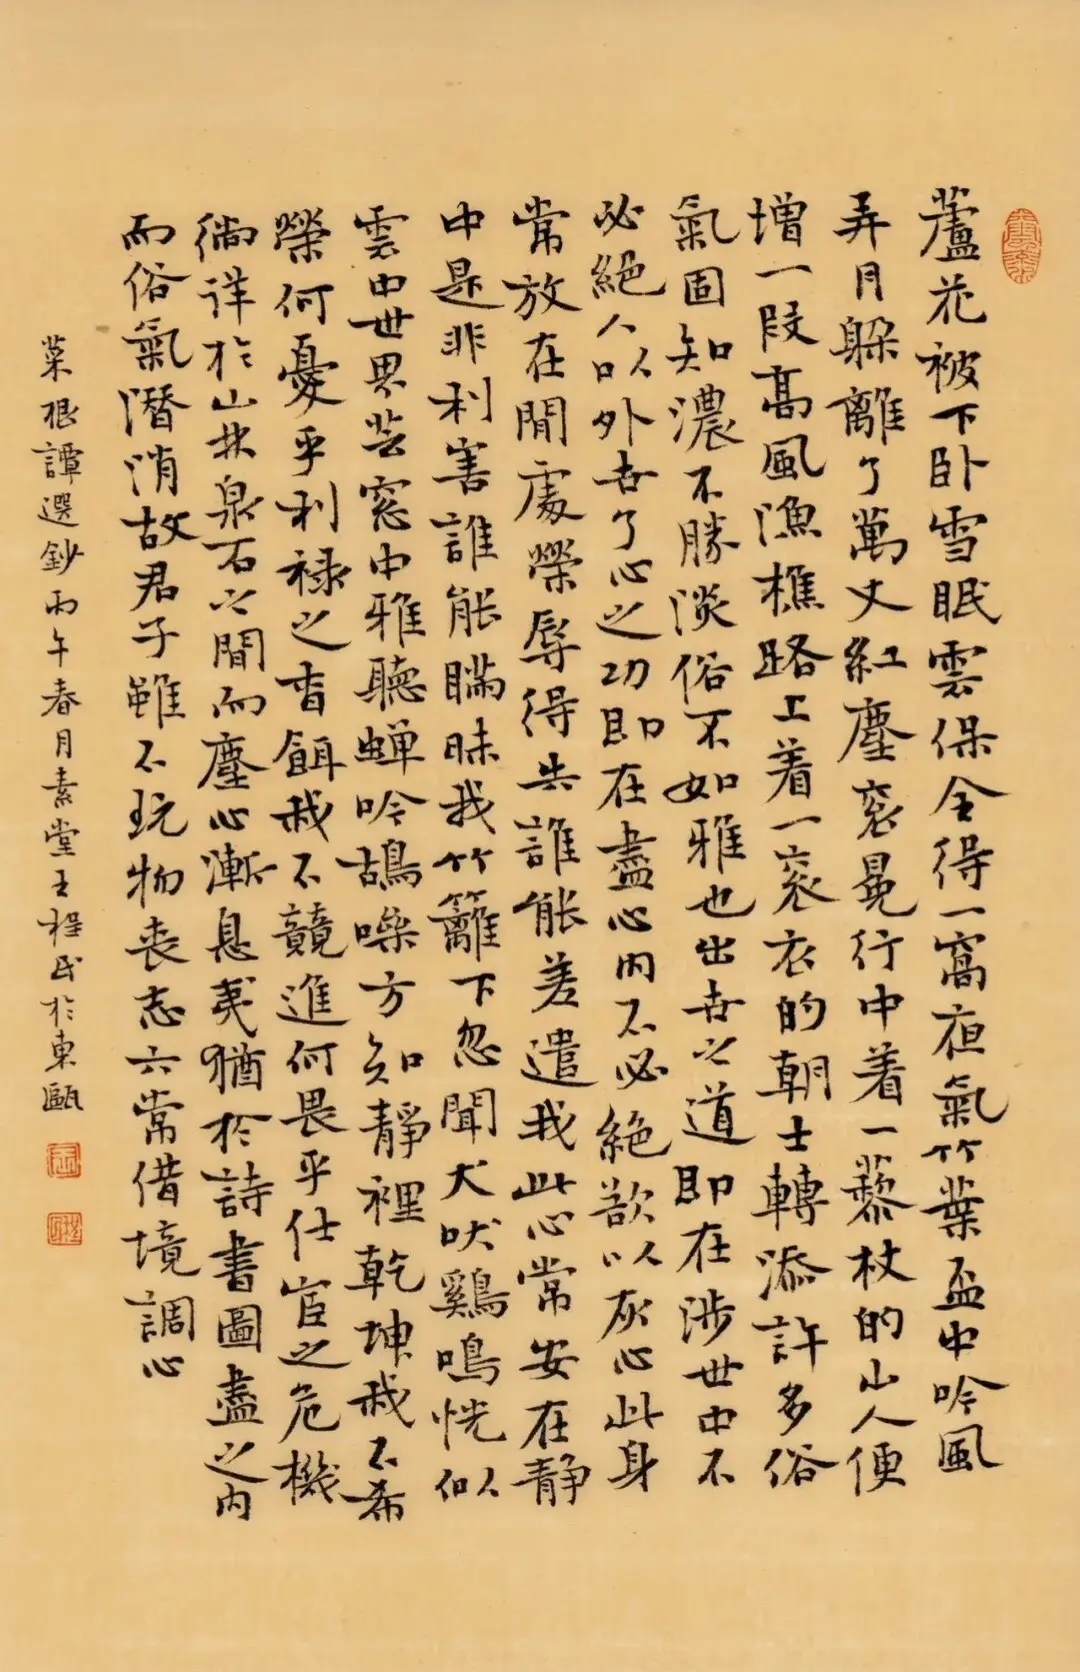 蘆花被下卧雪眠雲保全得一窩夜氣竹葉盃中吟風
弄月躲離了萬丈紅塵衮冕行中着一藜杖的山人便
增一段高風漁樵路上着一衮衣的朝士轉添許多俗
氣固知濃不勝淡俗不如雅也出世之道即在涉世中不
必絕人以外世了心之功即在盡心內不必絕欲以灰心此身
常放在閒處榮辱得失誰能差遣我此心常安在靜
中是非利害誰能瞞昧我竹籬下忽聞犬吠鷄鳴恍似
雲中世界芸窓中雅聽蟬吟鴣噪方知靜裡乾坤我不希
榮何憂乎利祿之香餌我不競進何畏乎仕宦之危機
徜徉於山林泉石之間而塵心漸息夷猶於詩書圖畫之內
而俗氣潛消故君子雖不玩物喪志亦常借境調心
菜根譚選鈔丙午春月素堂王程民於東甌